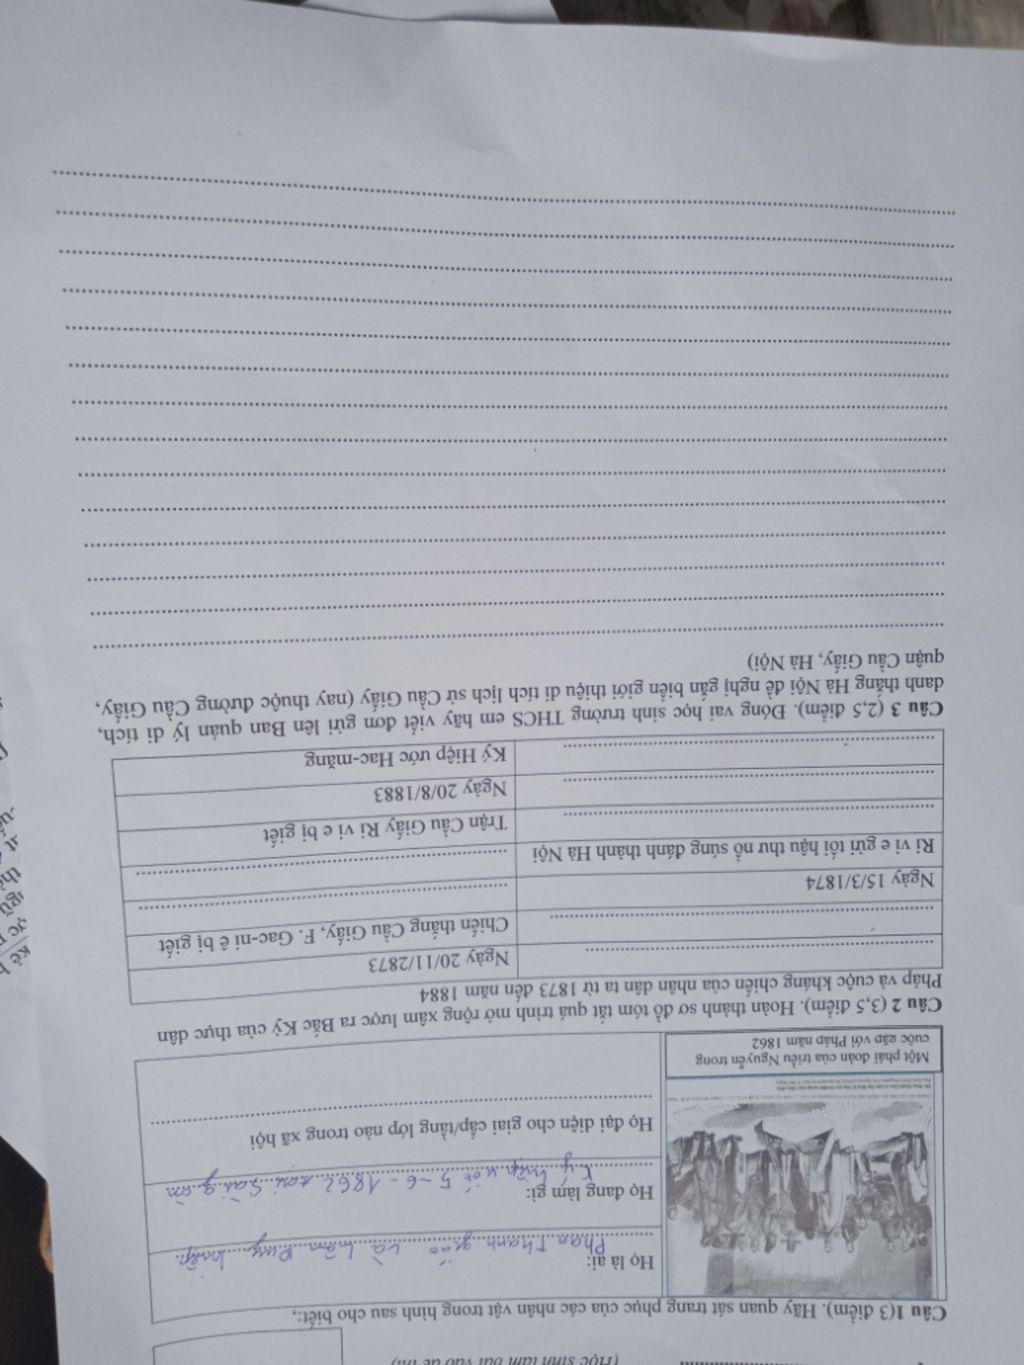 (Học sinh làm bài vào đề thi)
Câu 1(3 điểm). Hãy quan sát trang phục của các nhân vật trong hình sau cho biết:,
Họ là ai:
Phan thanh giản và Lâm Duy hiệp.
Họ đang làm gì:
ký hiệp ước 5-6-1862 tại Sài gòn
Họ đại diện cho giai cấp/tầng lớp nào trong xã hội
Một phái đoàn của triều Nguyễn trong
cuộc gặp với Pháp năm 1862
Câu 2 (3,5 điểm). Hoàn thành sơ đồ tóm tắt quá trình mở rộng xâm lược ra Bắc Kỳ của thực dân
Pháp và cuộc kháng chiến của nhân dân ta từ 1873 đến năm 1884
Ngày 20/11/2873
Chiến thắng Cầu Giấy, F. Gac-ni ê bị giết
Ngày 15/3/1874
Ri vi e gửi tối hậu thư nổ súng đánh thành Hà Nội
Trận Cầu Giấy Ri vi e bị giết
Ngày 20/8/1883
Ký Hiệp ước Hac-măng
Câu 3 (2,5 điểm). Đóng vai học sinh trường THCS em hãy viết đơn gửi lên Ban quản lý di tích,
danh thắng Hà Nội đề nghị gắn biển giới thiệu di tích lịch sử Cầu Giấy (nay thuộc đường Cầu Giấy,
quận Cầu Giấy, Hà Nội)